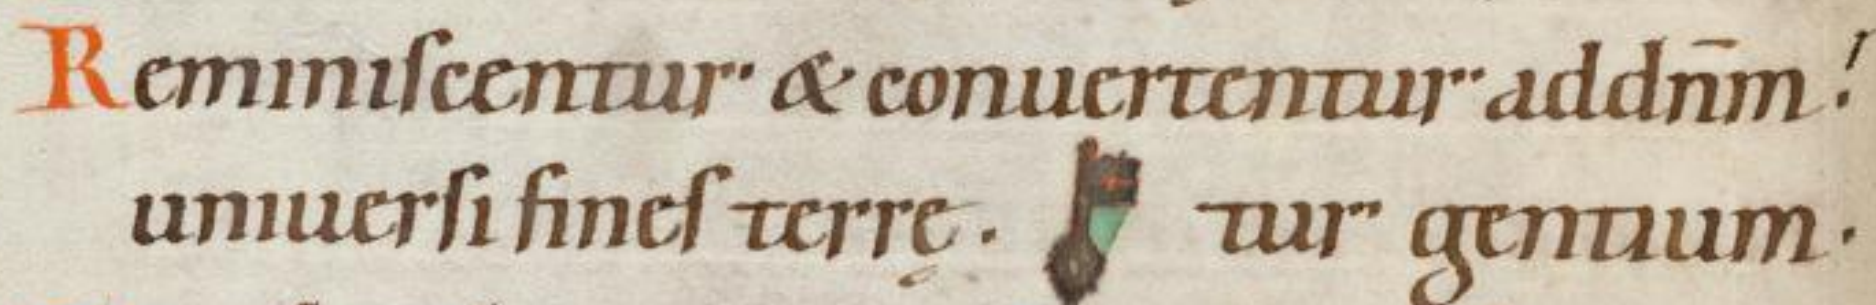 Reminiscentur & conuertentur addnm̄.
uniuersi fines terrę. tur gentium.